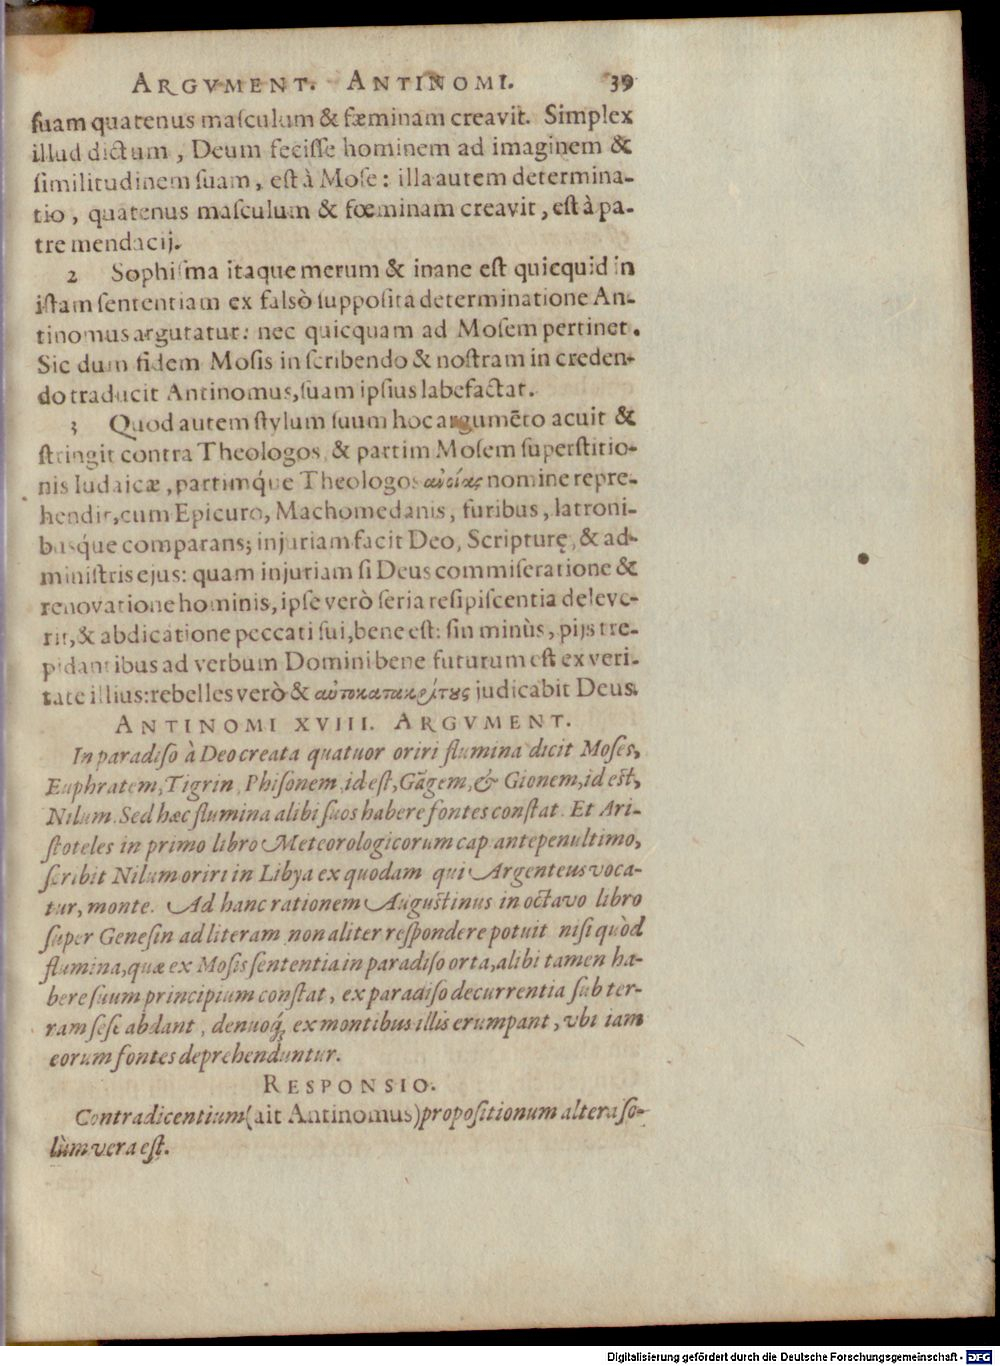 ARGVMENT. ANTINOMI. 39
ſuam quatenus maſculum & fæminam creavit. Simplex
illud dictum, Deum feciſſe hominem ad imaginem &
ſimilitudinem ſuam, eſt à Moſe: illa autem determina-
tio, quatenus maſculum & fœminam creavit, eſt à pa-
tre mendacij.
2 Sophiſma itaque merum & inane eſt quicquid in
iſtam ſententiam ex falsò ſuppoſita determinatione An-
tinomus argutatur: nec quicquam ad Moſem pertinet.
Sic dum fidem Moſis in ſcribendo & noſtram in creden-
do traducit Antinomus, ſuam ipſius labefactat.
3 Quod autem ſtylum ſuum hoc argumẽto acuit &
ſtringit contra Theologos, & partim Moſem ſuperſtitio-
nis Iudaicæ, partimq́ue Theologos nomine repre-
hendit, cum Epicuro, Machomedanis, furibus, latroni-
busq́ue comparans; injuriam facit Deo, Scripturę, & ad-
miniſtris ejus: quam injuriam ſi Deus commiſeratione &
renovatione hominis, ipſe verò ſeria reſipiſcentia deleve-
rit, & abdicatione peccati ſui, bene eſt: ſin minùs, pijs tre-
pidantibus ad verbum Domini bene futurum eſt ex veri-
tate illius: rebelles verò & αὐτοκατακρίτους judicabit Deus.
ANTINOMI XVIII. ARGVMENT.
In paradiſo à Deo creata quatuor oriri flumina dicit Moſes,
Euphratem, Tigrin, Phiſonem, id eſt, Gãgem, & Gionem, id eſt,
Nilum. Sed hæc flumina alibi ſuos habere fontes conſtat. Et Ari-
ſtoteles in primo libro Meteorologicorum cap. antepenultimo,
ſcribit Nilum oriri in Libya ex quodam qui Argenteus voca-
tur, monte. Ad hanc rationem Auguſtinus in octavo libro
ſuper Geneſin ad literam non aliter reſpondere potuit niſi quòd
flumina, quæ ex Moſis ſententia in paradiſo orta, alibi tamen ha-
bere ſuum principium conſtat, ex paradiſo decurrentia ſub ter-
ram ſeſe abdant, denuoq́; ex montibus illis erumpant, vbi iam
eorum fontes deprehenduntur.
RESPONSIO.
Contradicentium (ait Antinomus) propoſitionum altera ſo-
lùm vera eſt.
Digitalisierung gefördert durch die Deutsche Forschungsgemeinschaft - DFG